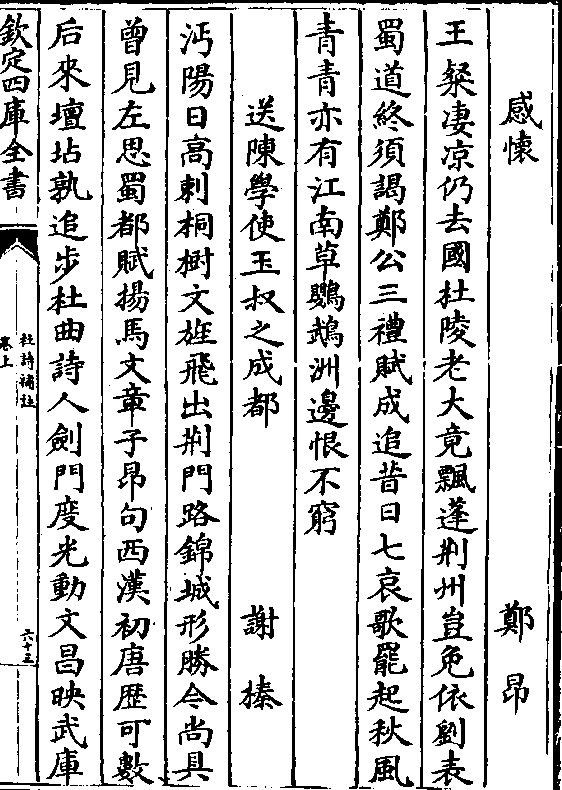 感懷 鄭昂
王粲凄凉仍去國杜陵老大竟飄蓬荆州豈免依劉表
蜀道終須謁鄭公三禮賦成追昔日七哀歌罷起秋風
青青亦有江南草鸚鵡洲邊恨不窮
送陳學使玉叔之成都 謝榛
沔陽日高刺桐樹文旌飛出荆門路錦城形勝今尚具
曾見左思蜀都賦揚馬文章子昂句西漢初唐歴可數
后來壇坫孰追步杜曲詩人劍門度光動文昌映武庫
欽定四庫全書
杜詩補註
卷上
六十三